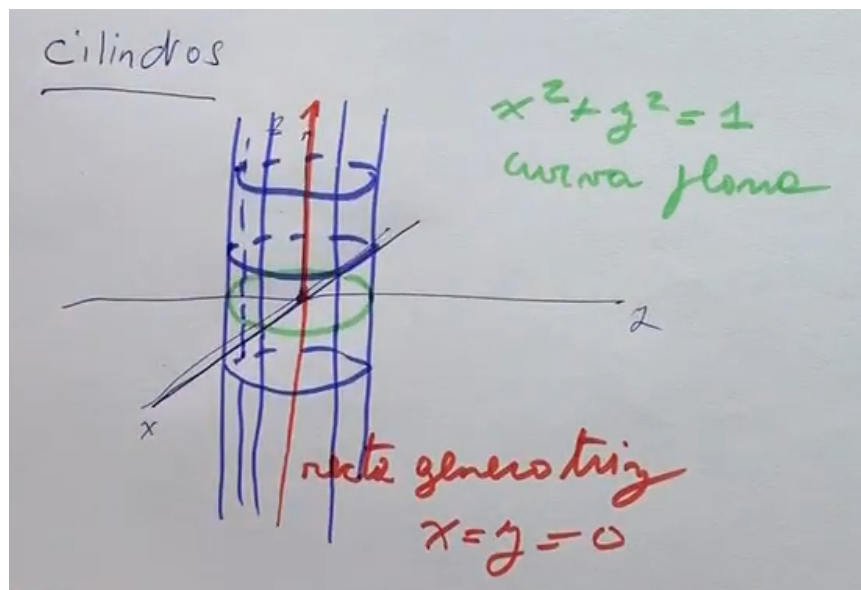 Cilindros
x² + y² = 1
curva plana
z
y
x
recta generatriz
x = y = 0